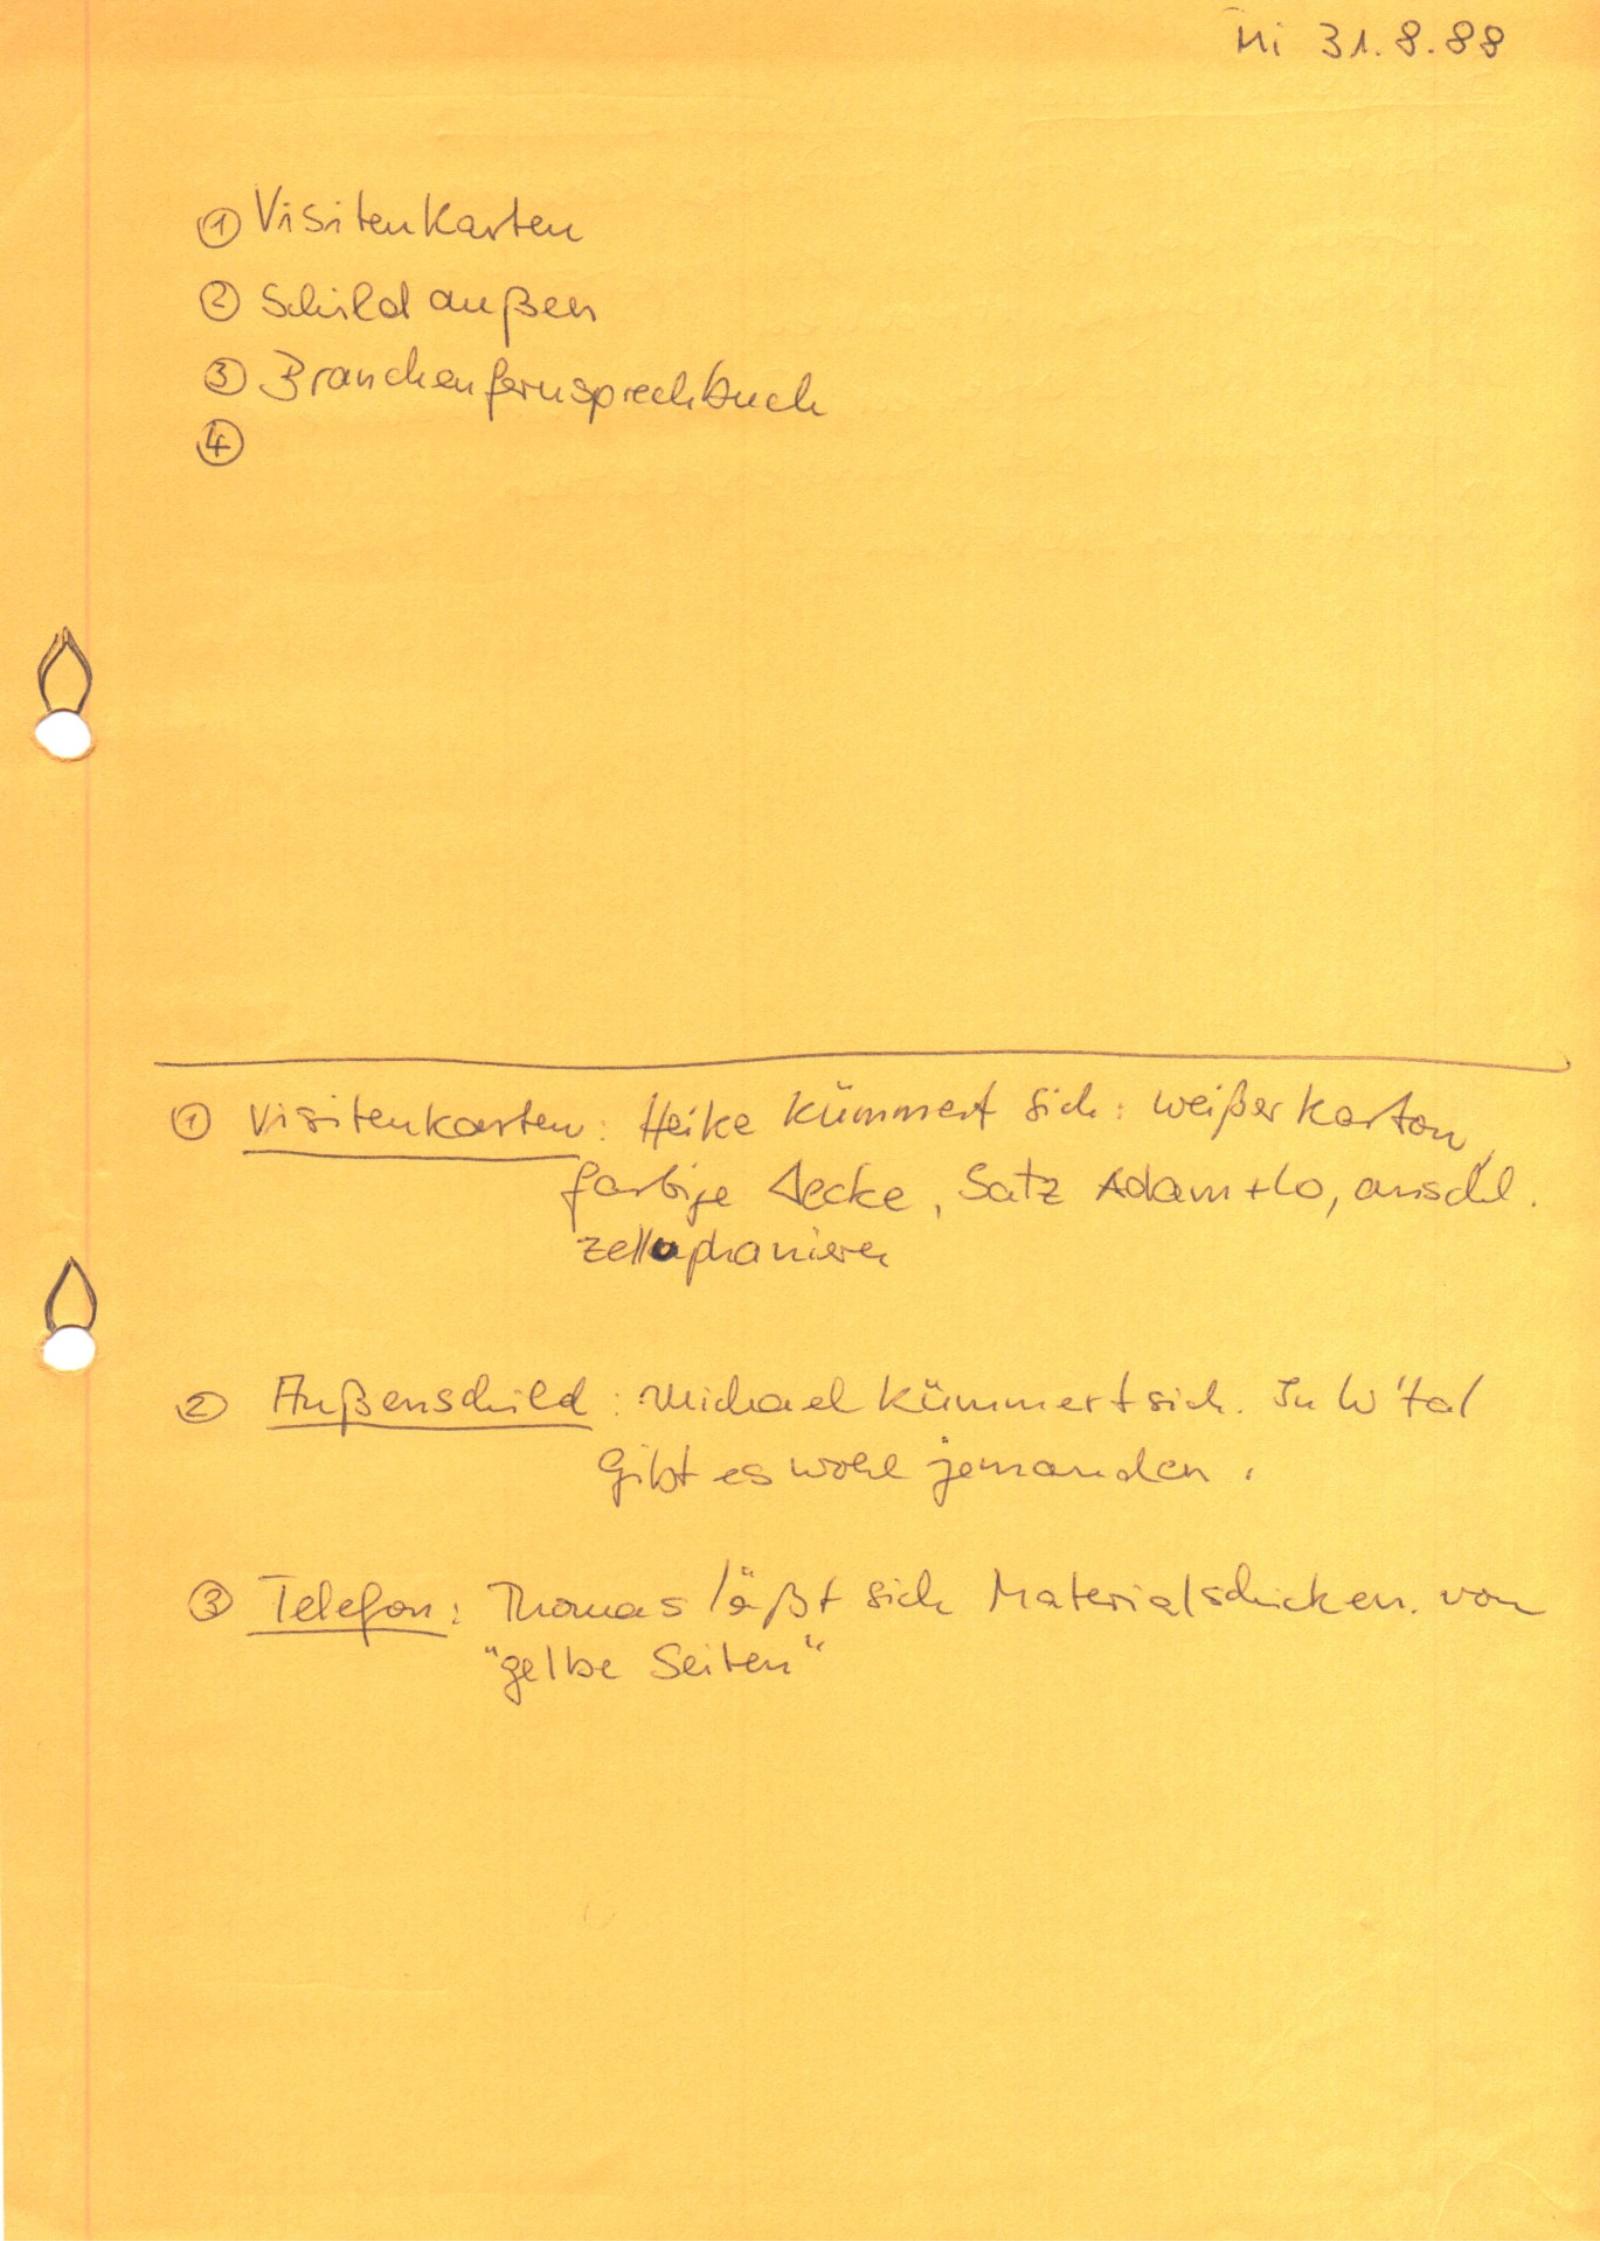 Mi 31.8.88
① Visitenkarten
② Schild außen
③ Branchenfernsprechbuch
④
① Visitenkarten: Heike kümmert sich: weißer Karton,
farbige Ecke, Satz Adam+Co, anschl.
zellophanieren
② Außenschild: Michael kümmert sich. In W'tal
gibt es wohl jemanden.
③ Telefon: Thomas läßt sich Material schicken. von
"gelbe Seiten"